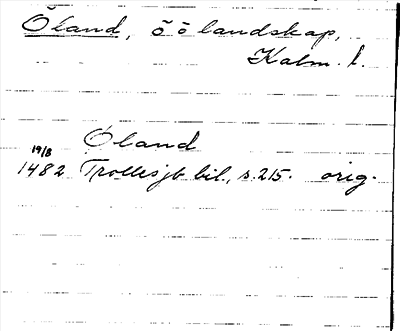 Öland, ö ö landskap,
Kalm. l.
Öland
19/8
1482 Trolles jb bil., s. 215. orig.